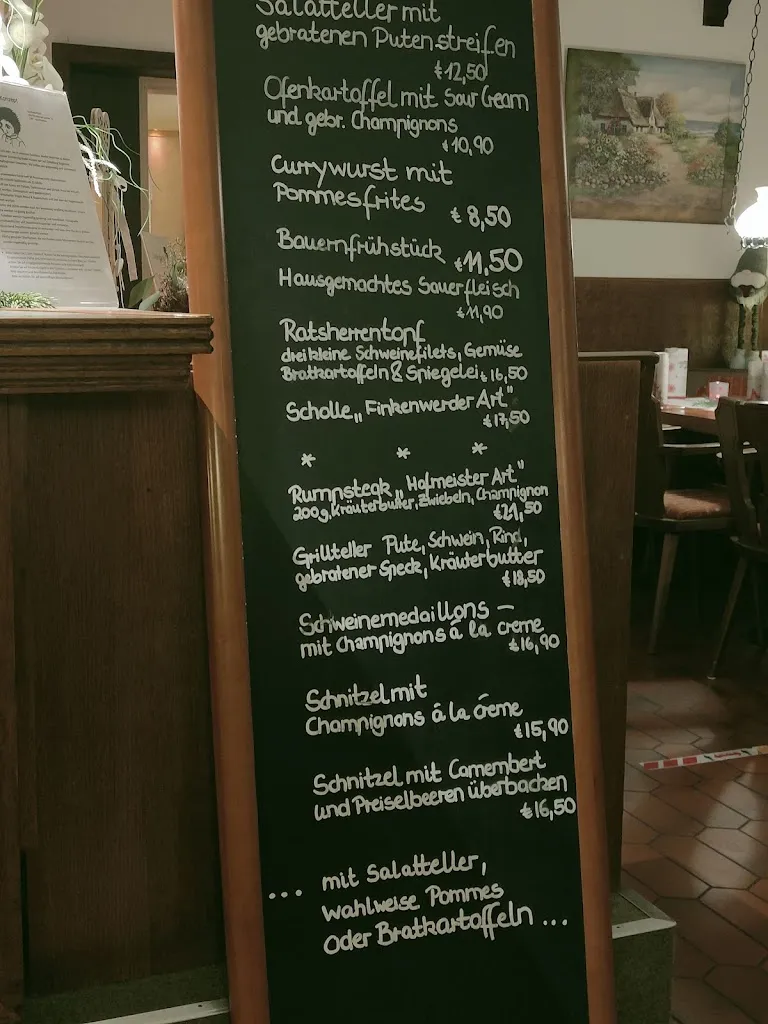 Salatteller mit
gebratenen Putenstreifen
€ 12,50
Ofenkartoffel mit Sour Cream
und gebr. Champignons
€ 10,90
Currywurst mit
Pommesfrites
€ 8,50
Bauernfrühstück € 11,50
Hausgemachtes Sauerfleisch
€ 11,90
Ratsherrentopf
drei kleine Schweinefilets, Gemüse
Bratkartoffeln & Spiegelei € 16,50
Scholle „Finkenwerder Art"
€ 17,50
* * *
Rumpsteak „Hofmeister Art"
200g, Kräuterbutter, Zwiebeln, Champignon
€ 21,50
Grillteller Pute, Schwein, Rind,
gebratener Speck, Kräuterbutter
€ 18,50
Schweinemedaillons –
mit Champignons á la creme
€ 16,90
Schnitzel mit
Champignons á la creme
€ 15,90
Schnitzel mit Camembert
und Preiselbeeren überbacken
€ 16,50
... mit Salatteller,
wahlweise Pommes
oder Bratkartoffeln ...